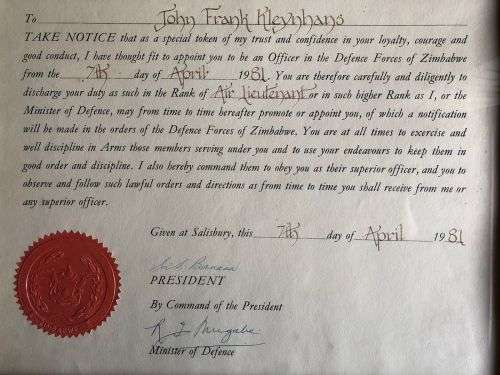 To John Frank Kleynhans
TAKE NOTICE that as a special token of my trust and confidence in your loyalty, courage and
good conduct, I have thought fit to appoint you to be an Officer in the Defence Forces of Zimbabwe
from the 7th day of April 1981. You are therefore carefully and diligently to
discharge your duty as such in the Rank of Air Lieutenant or in such higher Rank as I, or the
Minister of Defence, may from time to time hereafter promote or appoint you, of which a notification
will be made in the orders of the Defence Forces of Zimbabwe. You are at all times to exercise and
well discipline in Arms those members serving under you and to use your endeavours to keep them in
good order and discipline. I also hereby command them to obey you as their superior officer, and you
to observe and follow such lawful orders and directions as from time to time you shall receive from me or
any superior officer.
Given at Salisbury, this 7th day of April 1981
Banana
PRESIDENT
By Command of the President
R G Mugabe
Minister of Defence